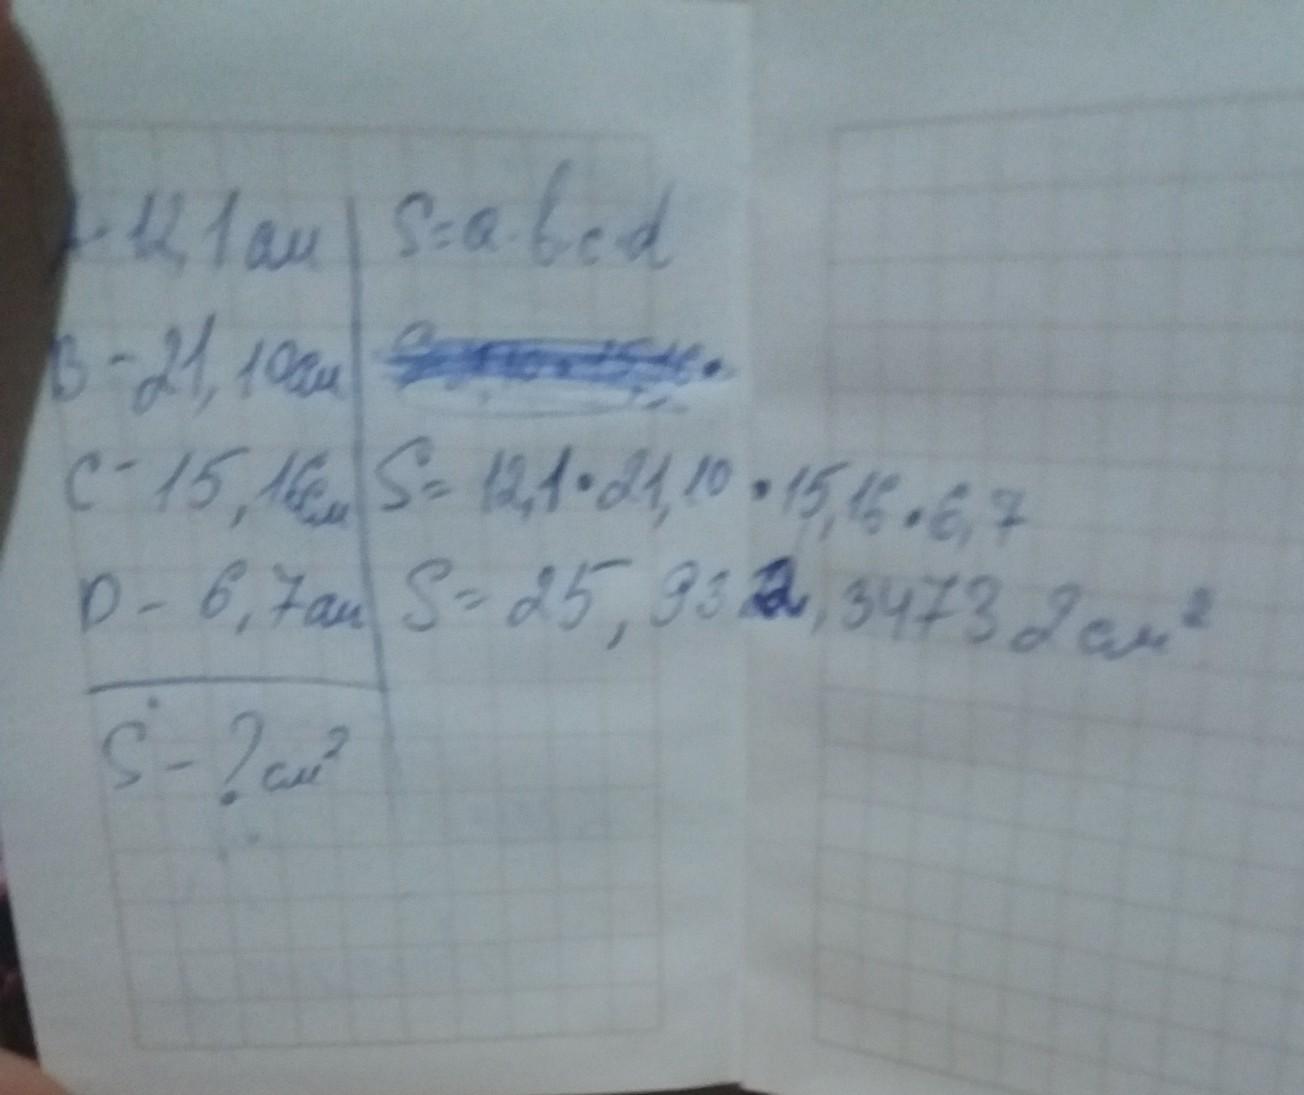 12,1 см
S=a·b·c·d
B - 21,10 см
C - 15,16 см
S= 12,1·21,10·15,16·6,7
D - 6,7 см
S= 25,932,34732 см²
S - ? см²